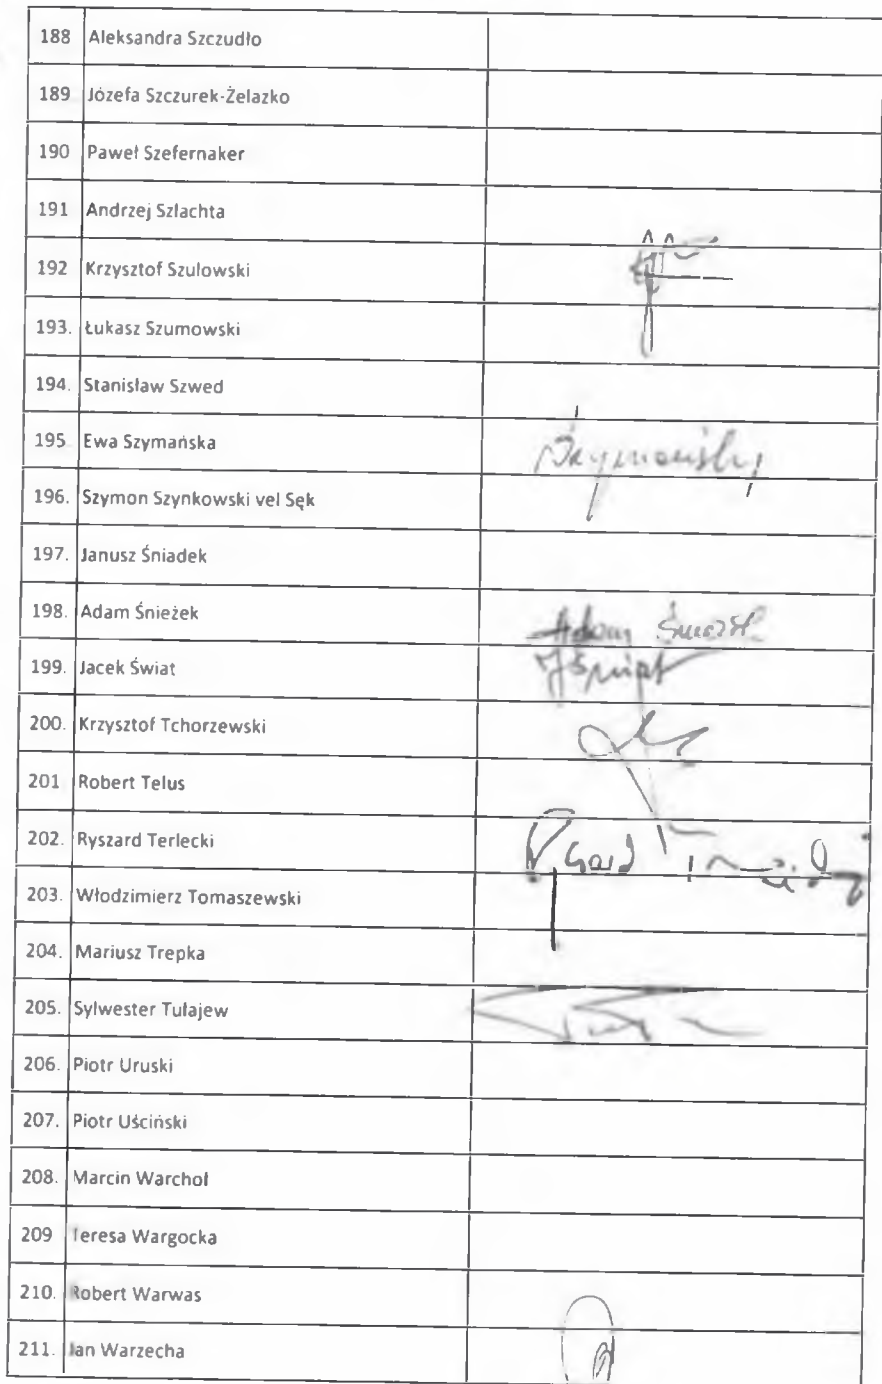 188 Aleksandra Szczudło
189 Józefa Szczurek-Żelazko
190 Paweł Szefernaker
191 Andrzej Szlachta
192 Krzysztof Szulowski
193. Łukasz Szumowski
194. Stanisław Szwed
195 Ewa Szymańska
196. Szymon Szynkowski vel Sęk
197. Janusz Śniadek
198. Adam Śnieżek Adam
199. Jacek Świat JŚwiat
200. Krzysztof Tchorzewski
201 Robert Telus
202. Ryszard Terlecki
203. Włodzimierz Tomaszewski
204. Mariusz Trepka
205. Sylwester Tułajew
206. Piotr Uruski
207. Piotr Uściński
208. Marcin Warchoł
209 Teresa Wargocka
210. Robert Warwas
211. Jan Warzecha